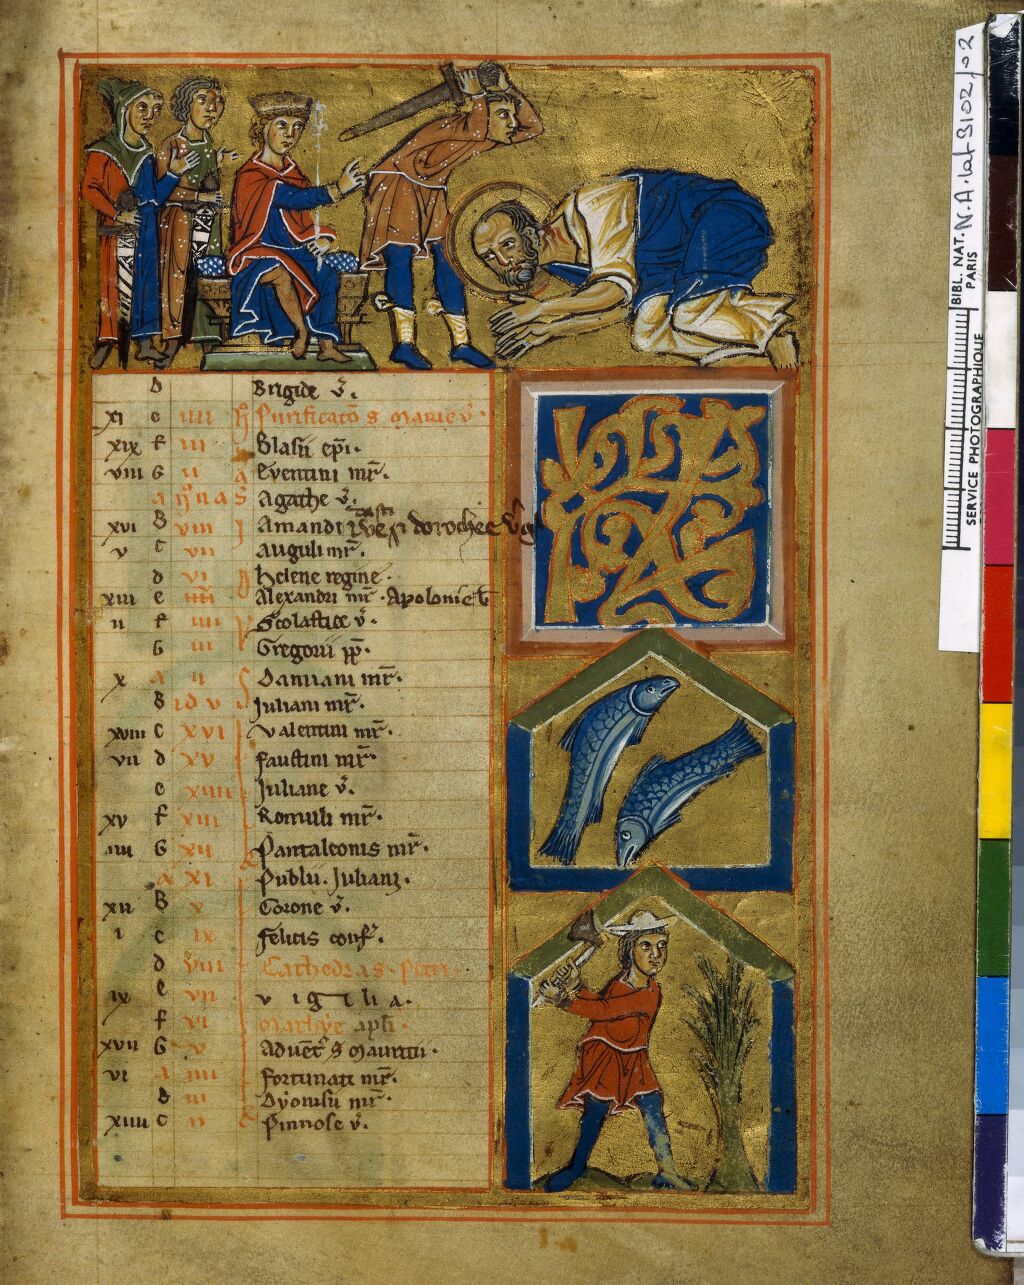 d Brigide v̄.
xi e iiii Purificatō s Marie v̄.
xix f iii Blasii ep̄i.
viii G ii Eventini mr̄.
a Agathe v̄.
xvi B viii Amandi
v c vii Auguli mr̄.
d vi Helene regine.
xiii e iiii Alexandri mr̄. Apolonie
ii f iiii Scolastice v̄.
G iii Gregorii pp̄.
x a ii Damiani mr̄.
B idv Juliani mr̄.
xviii c xvi Valentini mr̄.
vii d xv Faustini mr̄.
e xiiii Juliane v̄.
xv f xiii Romuli mr̄.
iiii G xii Pantaleonis mr̄.
a xi Publii. Juliani.
xii B x Corone v̄.
i c ix Felicis conf̄.
d viii Cathedra s. Petri.
ix e vii vigilia.
f vi Mathye apl̄i.
xvii G v Advēt s Mauritii.
vi a iiii Fortunati mr̄.
b iii Dyonisii mr̄.
xiiii c ii Pinnose v̄.
N.A. lat 3102/02
BIBL. NAT.
PARIS
SERVICE PHOTOGRAPHIQUE